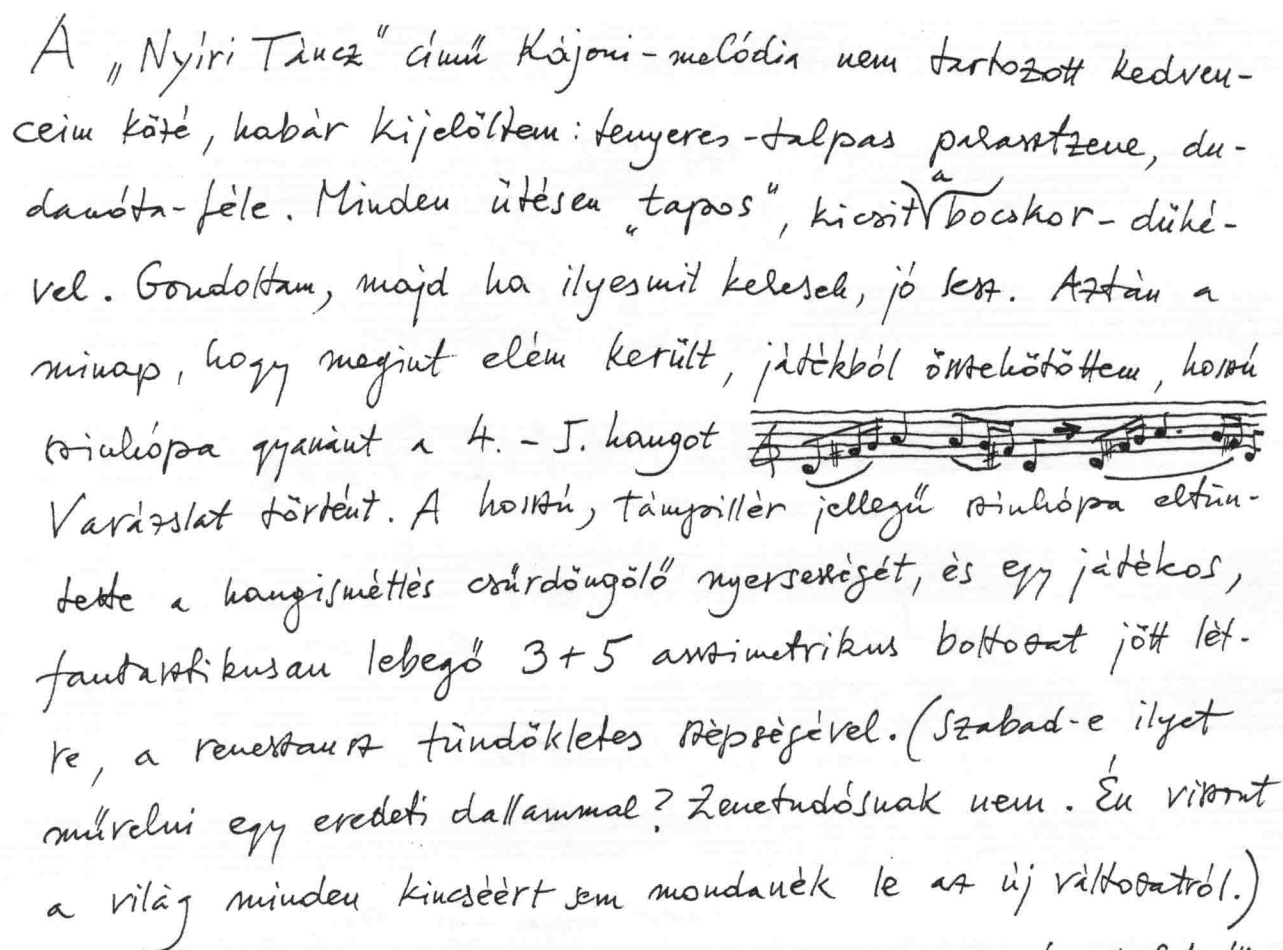 A „Nyíri Táncz" című Kájoni-melódia nem tartozott kedven-
ceim közé, habár kijelöltem: tenyeres-talpas parasztzene, du-
danóta-féle. Minden ütésen „tapos", kicsit a bocskor-dühé-
vel. Gondoltam, majd ha ilyesmit keresek, jó lesz. Aztán a
minap, hogy megint elém került, játékból összekötöttem, hosszú
szinkópa gyanánt a 4. - 5. hangot
Varázslat történt. A hosszú, támpillér jellegű szinkópa eltün-
tette a hangismétlés csűrdöngölő nyerseségét, és egy játékos,
fantasztikusan lebegő 3+5 asszimetrikus boltozat jött lét-
re, a reneszansz tündökletes szépségével. (Szabad-e ilyet
művelni egy eredeti dallammal? Zenetudósnak nem. Én viszont
a világ minden kincséért sem mondanék le az új változatról.)